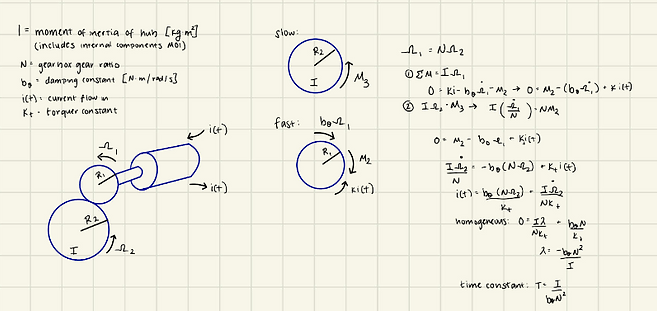 I = moment of inertia of hub [kg·m²]
(includes internal components MOI)
N = gearbox gear ratio
b_θ = damping constant [N·m/rad/s]
i(t) = current flow in
K_t = torque constant
i(t)
Ω₁
R₁
i(t)
R₂
I
Ω₂
slow:
R₂
I
M₃
fast:
b_θ Ω₁
R₁
M₂
Ki(t)
Ω₁ = NΩ₂
① ΣM = IΩ̇₁
0 = Ki - b_θ Ω₁ - M₂ → 0 = M₂ - (b_θ Ω₁) + Ki(t)
② IΩ̇₂ = M₃ → I(Ω̇₁/N) = NM₂
0 = M₂ - b_θ Ω₁ + Ki(t)
IΩ̇₂/N = -b_θ (NΩ₂) + K_t i(t)
i(t) = b_θ(NΩ₂)/K_t + IΩ̇₂/NK_t
homogeneous: 0 = Iλ/NK_t + b_θN/K_t
λ = -b_θN²/I
time constant: T = I/b_θN²